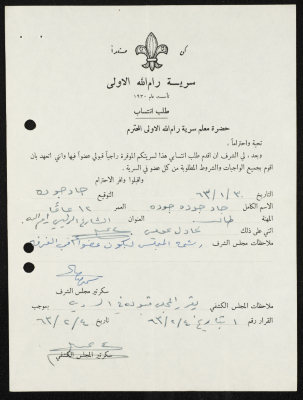 كن مستعداً
سرية رام الله الاولى
تأسست عام ١٩٣٠
طلب انتساب
حضرة معلم سرية رام الله الاولى المحترم
تحية واحتراماً،
وبعد، لي الشرف ان اقدم طلب انتسابي هذا لسريتكم الموقرة راجياً قبولي عضواً فيها واني اتعهد بان
اقوم بجميع الواجبات والشروط المطلوبة من كل عضو في السرية.
وتفضلوا وافر الاحترام
التاريخ ٦٣/١/٣٠ التوقيع جاد جوده
الاسم الكامل جاد جوده جوده العمر ١٢ عاماً
المهنة طالب العنوان الشارع الرئيسي رام الله
اثنى على ذلك عادل
ملاحظات مجلس الشرف المجلس ليكون عضواً في الفرقة
سكرتير مجلس الشرف
ملاحظات المجلس الكشفي يقر المجلس قبوله في بموجب
القرار رقم ١ بتاريخ ٦٣/٢/٤ تاريخ ٦٣/٢/٤
سكرتير المجلس الكشفي